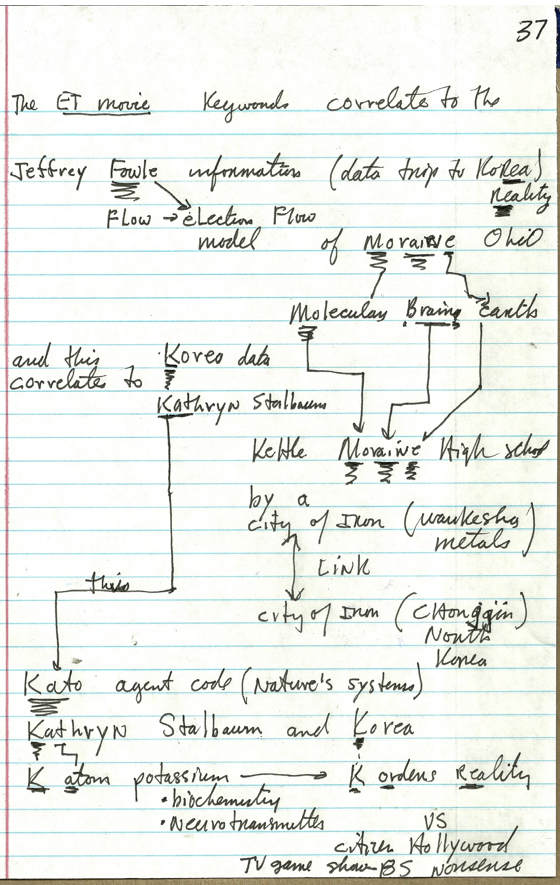 37
The ET movie Keywords correlate to the
Jeffrey Fowle information (data trip to Korea)
Reality
Flow → election Flow
model of Moraine Ohio
Molecular Brains Earth
and this Korea data
correlates to
Kathryn Stalbaum
Kettle Moraine High school
by a
city of Iron (Waukesha
metals)
Link
city of Iron (Chongjin)
North
Korea
this
Kato agent code (Nature's systems)
Kathryn Stalbaum and Korea
K atom potassium → K orders Reality
• biochemistry
• Neurotransmitters
VS
citizen Hollywood
TV game show BS Nonsense